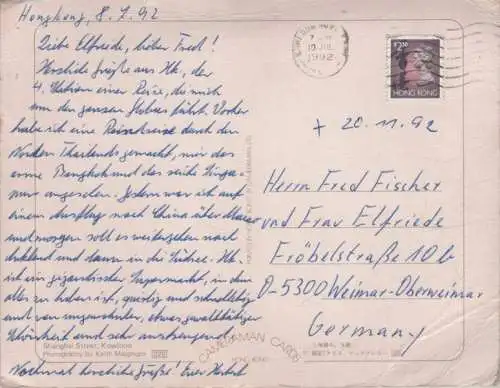 Hongkong, 8.7.92
Liebe Elfriede, lieber Fred!
Herzliche Grüße aus Hk, der
4. Station einer Reise, die mich
um den ganzen Globus führt. Vorher
habe ich eine Reise durch den
Norden Thailands gemacht, mir das
arme Bangkok und das reiche Singa-
pur angesehen. Gestern war ich auf
einem Ausflug nach China über Macao
und morgen soll es weitergehen nach
und dann in die Südsee. Hk.
ist ein gigantischer Supermarkt, in dem
alles zu haben ist, quirlig und schnellebig
und von ungewohnter, etwas gewalttätiger
Schönheit und sehr anstrengend.
Nochmal herzliche Grüße! Euer
Shanghai Street, Kowloon
Photography by Keith Macgregor
CAMERAMAN CARDS
HONG KONG
10 JUL
1992
$2.30
HONG KONG
+ 20.11.92
Herrn Fred Fischer
und Frau Elfriede
Fröbelstraße 10b
O-5300 Weimar-Oberweimar
Germany